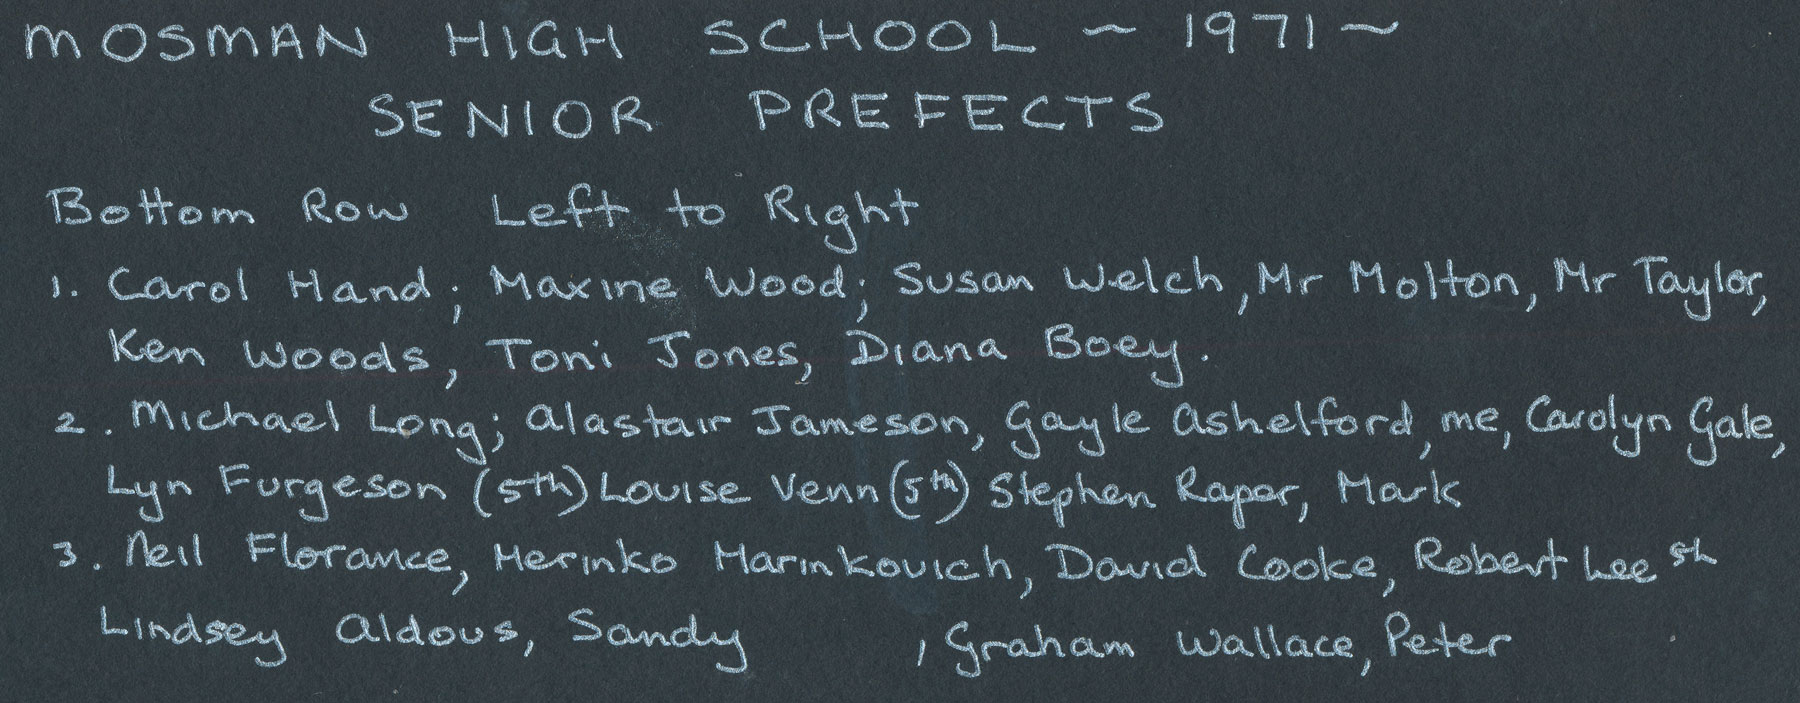 MOSMAN HIGH SCHOOL ~ 1971 ~
SENIOR PREFECTS
Bottom Row Left to Right
1. Carol Hand; Maxine Wood; Susan Welch, Mr Molton, Mr Taylor,
Ken Woods, Toni Jones, Diana Boey.
2. Michael Long; Alastair Jameson, Gayle Ashelford, me, Carolyn Gale,
Lyn Furgeson (5th) Louise Venn (5th) Stephen Raper, Mark
3. Neil Florance, Merinko Marinkovich, David Cooke, Robert Lee 5th
Lindsey Aldous, Sandy , Graham Wallace, Peter